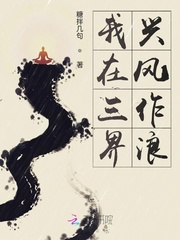 我在三界
兴风作浪
糖拌几句。著